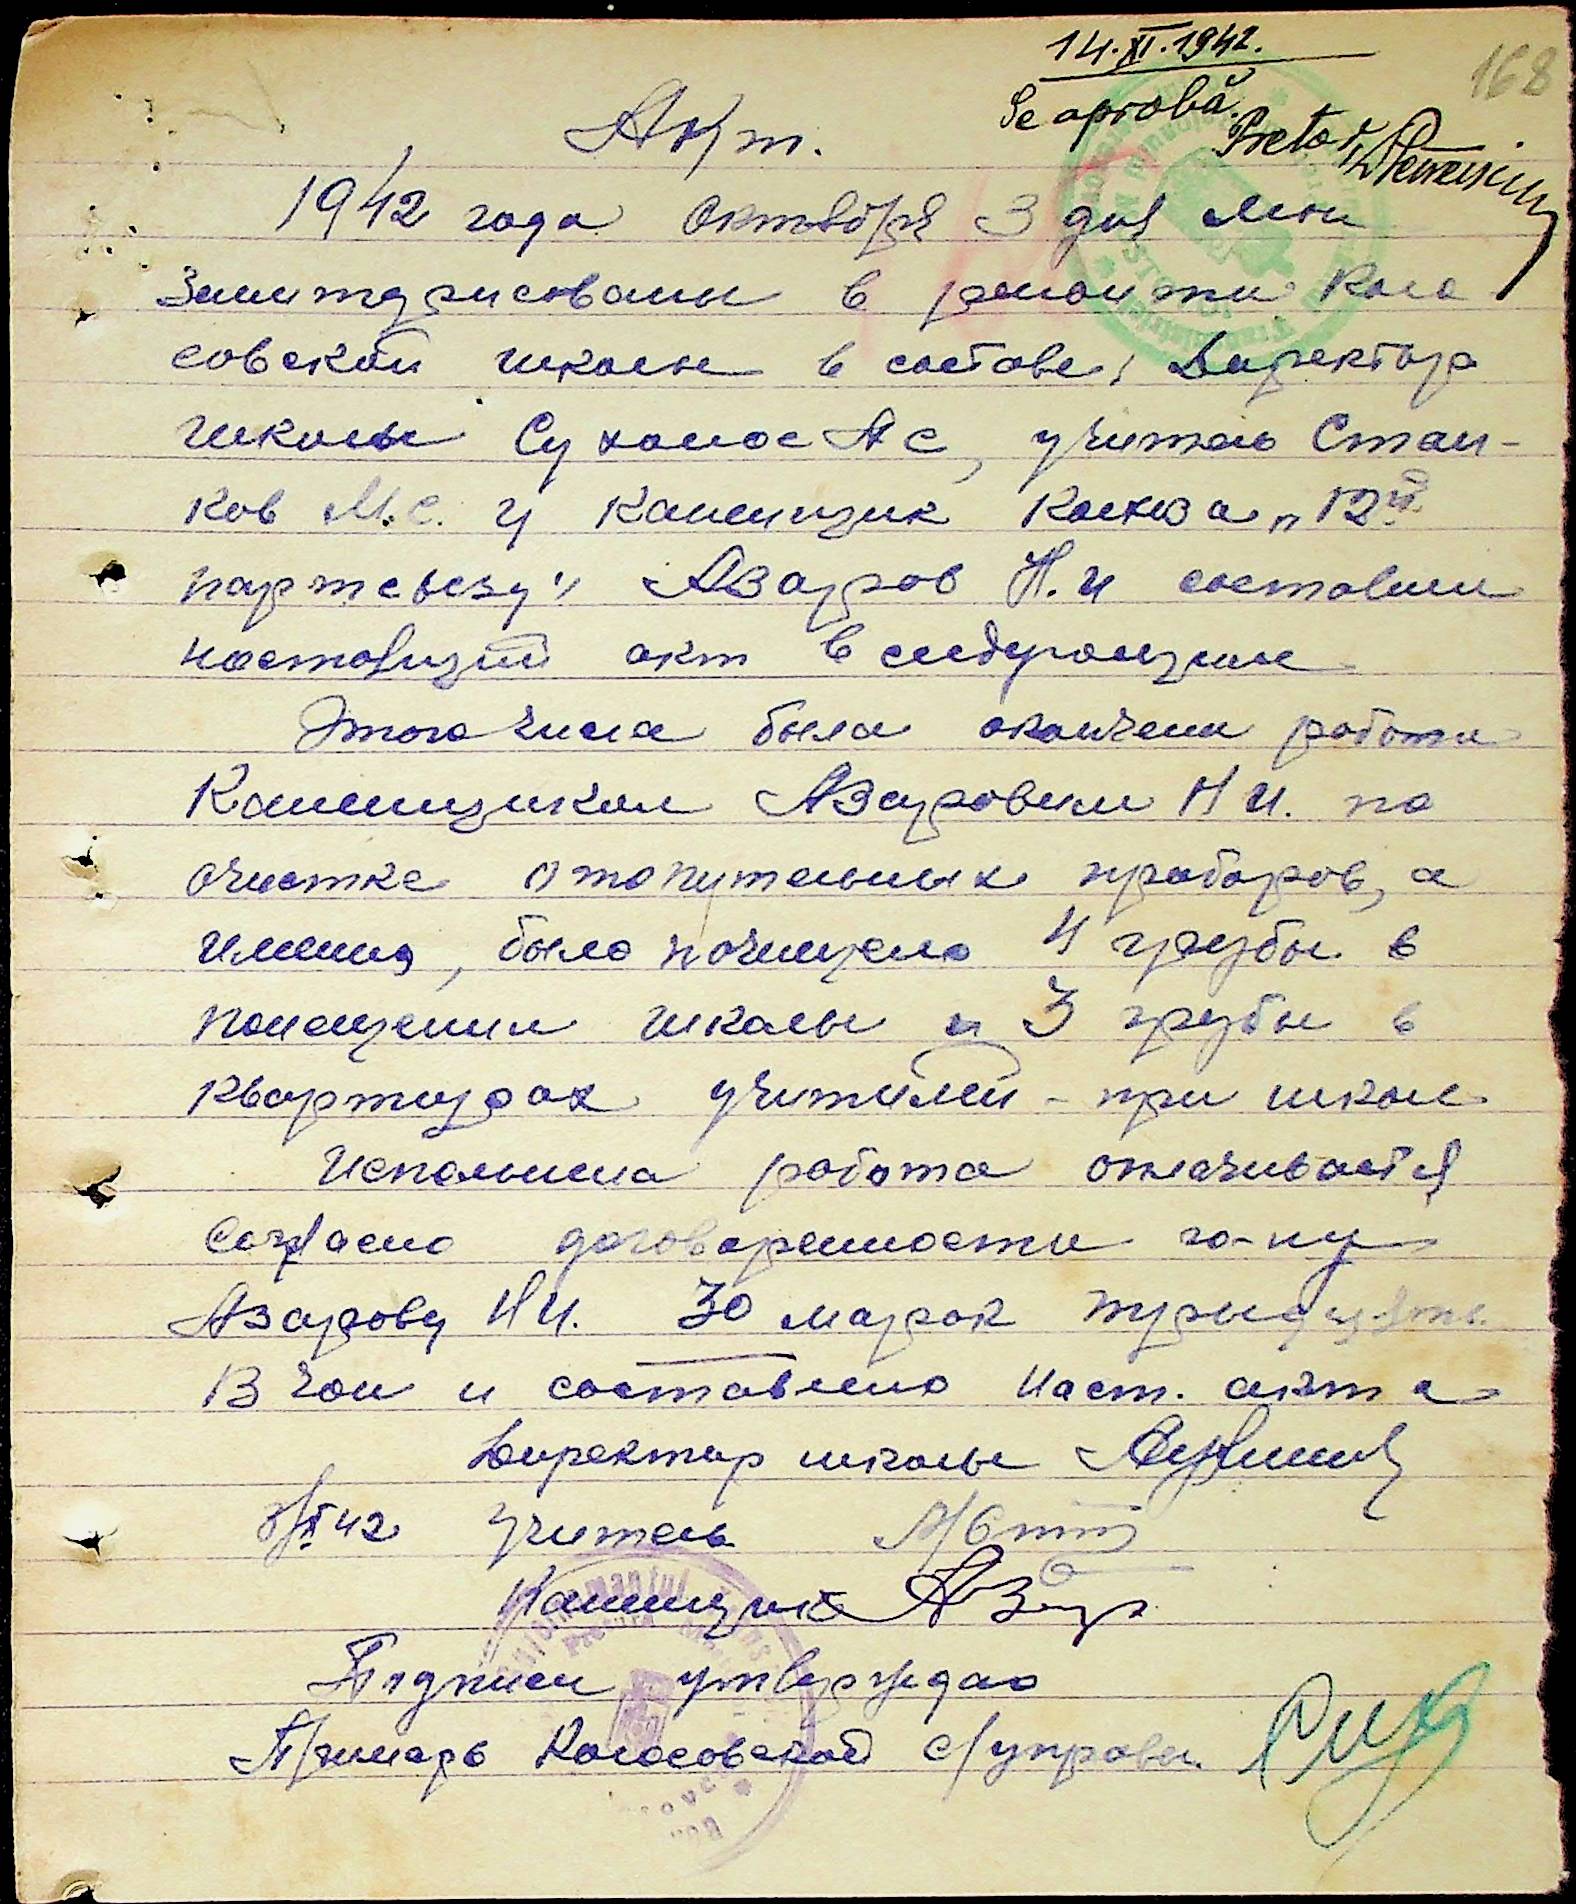 14.XI.1942.
168
Se aprobă.
Pretor,
Акт.
1942 года октября 3 дня мы
заинтурисованы в ремонти Коло
совской школы в составе, Директора
школы Сухонос А С, учитель Стан-
ков М.С. и каменщик колхоза „12й
партсьезу" Азаров Н.И составили
настоящий акт в следующем
Этого числа была окончена работа
Каменщиком Азаровым Н И. по
очистке отопительных приборов, а
именно, было почищено 4 грубы в
помещении школы и 3 грубы в
квартирах учитилей - при школе
Исполнена работа оплачивается
согласно договоренности гр-ну
Азарову Н И. 30 марок тридцать.
В чом и составлено наст. акта
Директор школы
3/X 42 Учитель
Каменщик
Подписи утверждаю
Примарь Колосовской с/управы.